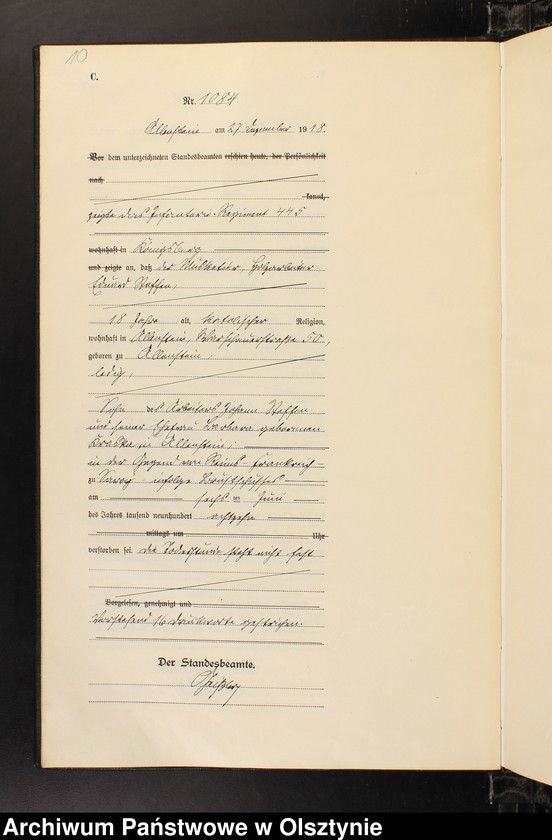 10
C.
Nr. 1084.
Allenstein am 27 Dezember 1918.
Vor dem unterzeichneten Standesbeamten erschien heute, der Persönlichkeit
nach
kannt,
zeigte das Infanterie-Regiment 445
wohnhaft in Königsberg
und zeigte an, daß der Musketier, Holzarbeiter
Eduard Steffen,
18 Jahre alt, katolischer Religion,
wohnhaft in Allenstein, Warschauerstraße 50,
geboren zu Allenstein,
ledig,
Sohn des Arbeiters Johann Steffen
und seiner Ehefrau Barbara geborenen
in Allenstein,
in der Gegend von Reims - Frankreich -
zu infolge Brustschusses
am sechs ten Juni
des Jahres tausend neunhundert achtzehn
mittags um Uhr
verstorben sei. Die Todesstunde steht nicht fest
Vorgelesen, genehmigt und
Vorstehend 16 Druckworte gestrichen.
Der Standesbeamte.
Archiwum Państwowe w Olsztynie